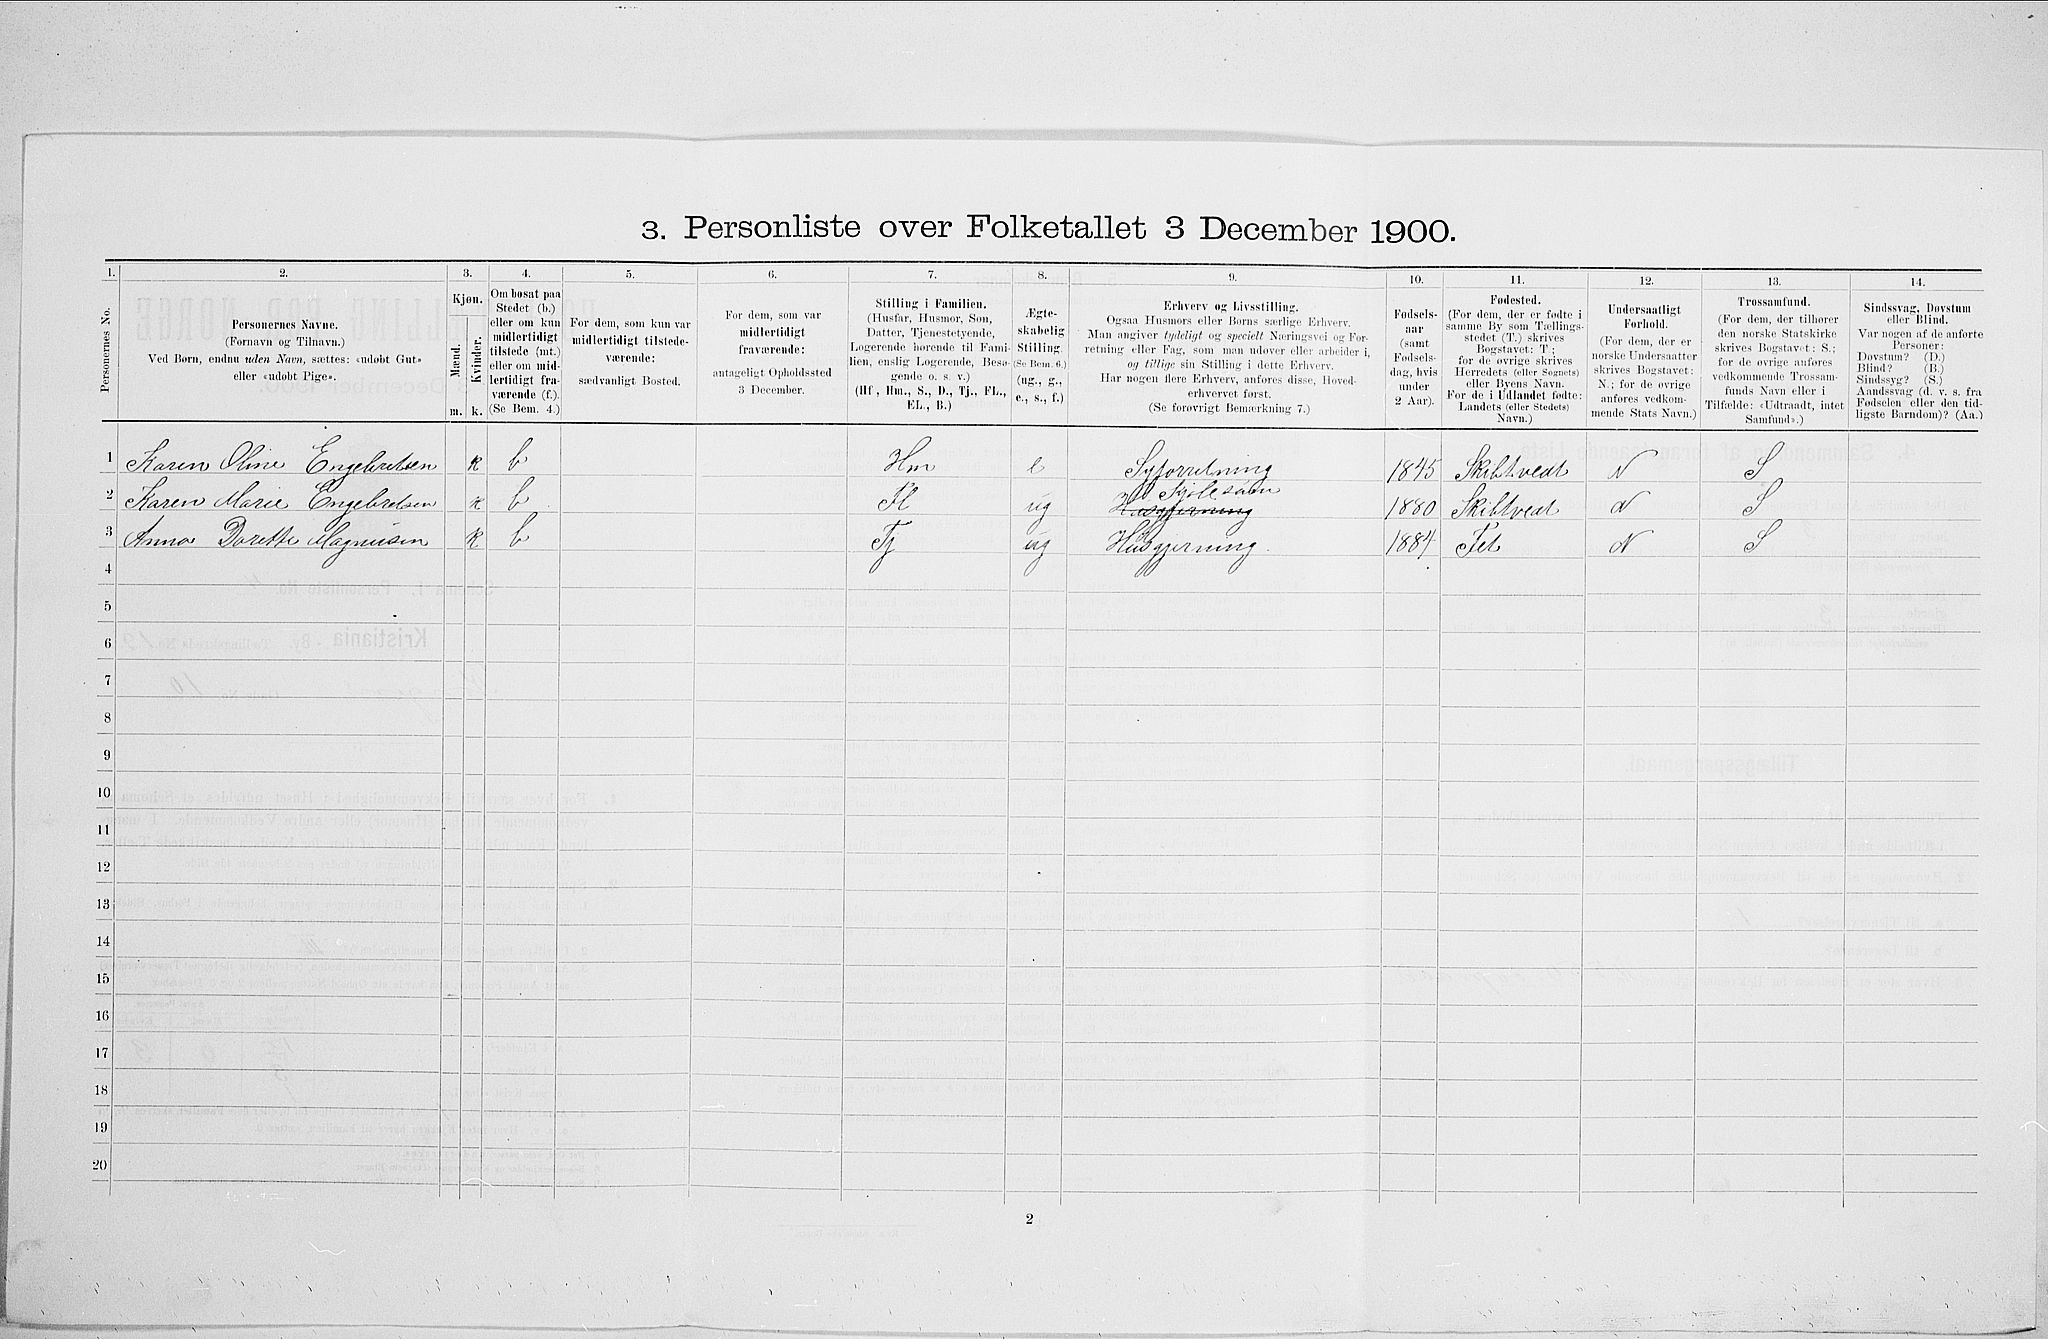 3. Personliste over Folketallet 3 December 1900.
1. 2. 3. 4. 5. 6. 7. 8. 9. 10. 11. 12. 13. 14.
Personernes No.
Personernes Navne.
(Fornavn og Tilnavn.)
Ved Børn, endnu uden Navn, sættes: «udøbt Gut»
eller «udøbt Pige».
Kjøn.
Mænd.
Kvinder.
m. k.
Om bosat paa
Stedet (b.)
eller om kun
midlertidigt
tilstede (mt.)
eller om mid-
lertidigt fra-
værende (f.).
(Se Bem. 4.)
For dem, som kun var
midlertidigt tilstede-
værende:
sædvanligt Bosted.
For dem, som var
midlertidigt
fraværende:
antageligt Opholdssted
3 December.
Stilling i Familien.
(Husfar, Husmor, Søn,
Datter, Tjenestetyende,
Logerende hørende til Fami-
lien, enslig Logerende, Besø-
gende o. s. v.)
(Hf, Hm., S., D., Tj., FL.,
EL., B.)
Ægte-
skabelig
Stilling.
(Se Bem. 6.)
(ug., g.,
e., s., f.)
Erhverv og Livsstilling.
Ogsaa Husmors eller Børns særlige Erhverv.
Man angiver tydeligt og specielt Næringsvei og For-
retning eller Fag, som man udøver eller arbeider i,
og tillige sin Stilling i dette Erhverv.
Har nogen flere Erhverv, anføres disse, Hoved-
erhvervet først.
(Se forøvrigt Bemærkning 7.)
Fødsels-
aar
(samt
Fødsels-
dag, hvis
under
2 Aar).
Fødested.
(For dem, der er fødte i
samme By som Tællings-
stedet (T.) skrives
Bogstavet: T.;
for de øvrige skrives
Herredets (eller Sognets)
eller Byens Navn.
For de i Udlandet fødte:
Landets (eller Stedets)
Navn.)
Undersaatligt
Forhold.
(For dem, der er
norske Undersaatter
skrives Bogstavet:
N.; for de øvrige
anføres vedkom-
mende Stats Navn.)
Trossamfund.
(For dem, der tilhører
den norske Statskirke
skrives Bogstavet: S.;
for de øvrige anføres
vedkommende Trossam-
funds Navn eller i
Tilfælde: «Udtraadt, intet
Samfund».)
Sindssvag, Døvstum
eller Blind.
Var nogen af de anførte
Personer:
Døvstum? (D.)
Blind? (B.)
Sindssyg? (S.)
Aandssvag (d. v. s. fra
Fødselen eller den tid-
ligste Barndom)? (Aa.)
1 Karen Oline Engebretsen k b Hm e Syforretning 1845 Skibtvedt N S
2 Karen Marie Engebretsen k b Fl ug Kjolesøm Husgjerning 1880 Skibtvedt N S
3 Anna Dorette Magnussen k b Tj ug Husgjerning. 1884 Fet N S
4
5
6
7
8
9
10
11
12
13
14
15
16
17
18
19
20
2